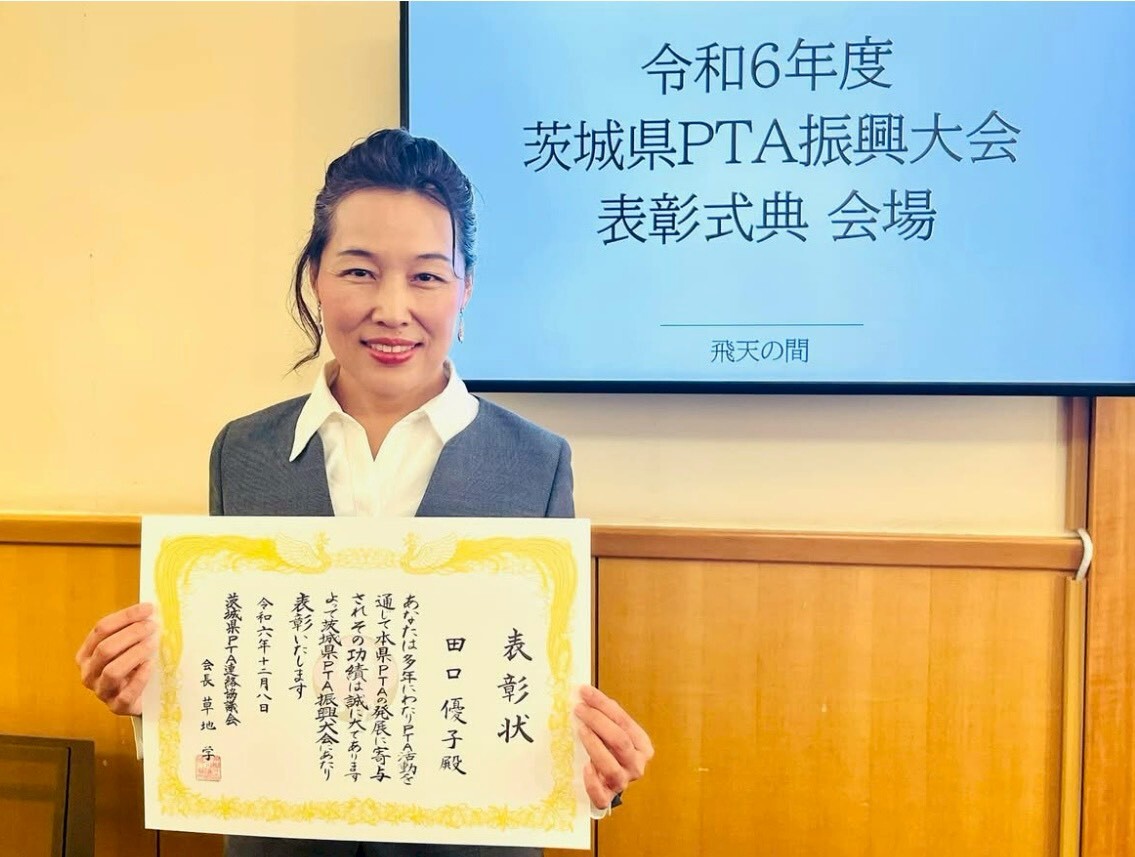 令和6年度
茨城県PTA振興大会
表彰式典 会場
飛天の間
表彰状
田口優子殿
あなたは多年にわたりPTA活動を
通して本県PTAの発展に寄与
されその功績は誠に大であります
よって茨城県PTA振興大会にあたり
表彰いたします
令和六年十二月八日
茨城県PTA連絡協議会
会長 草地 学